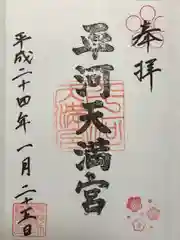 奉拝
平河天満宮
平成二十四年一月二十五日